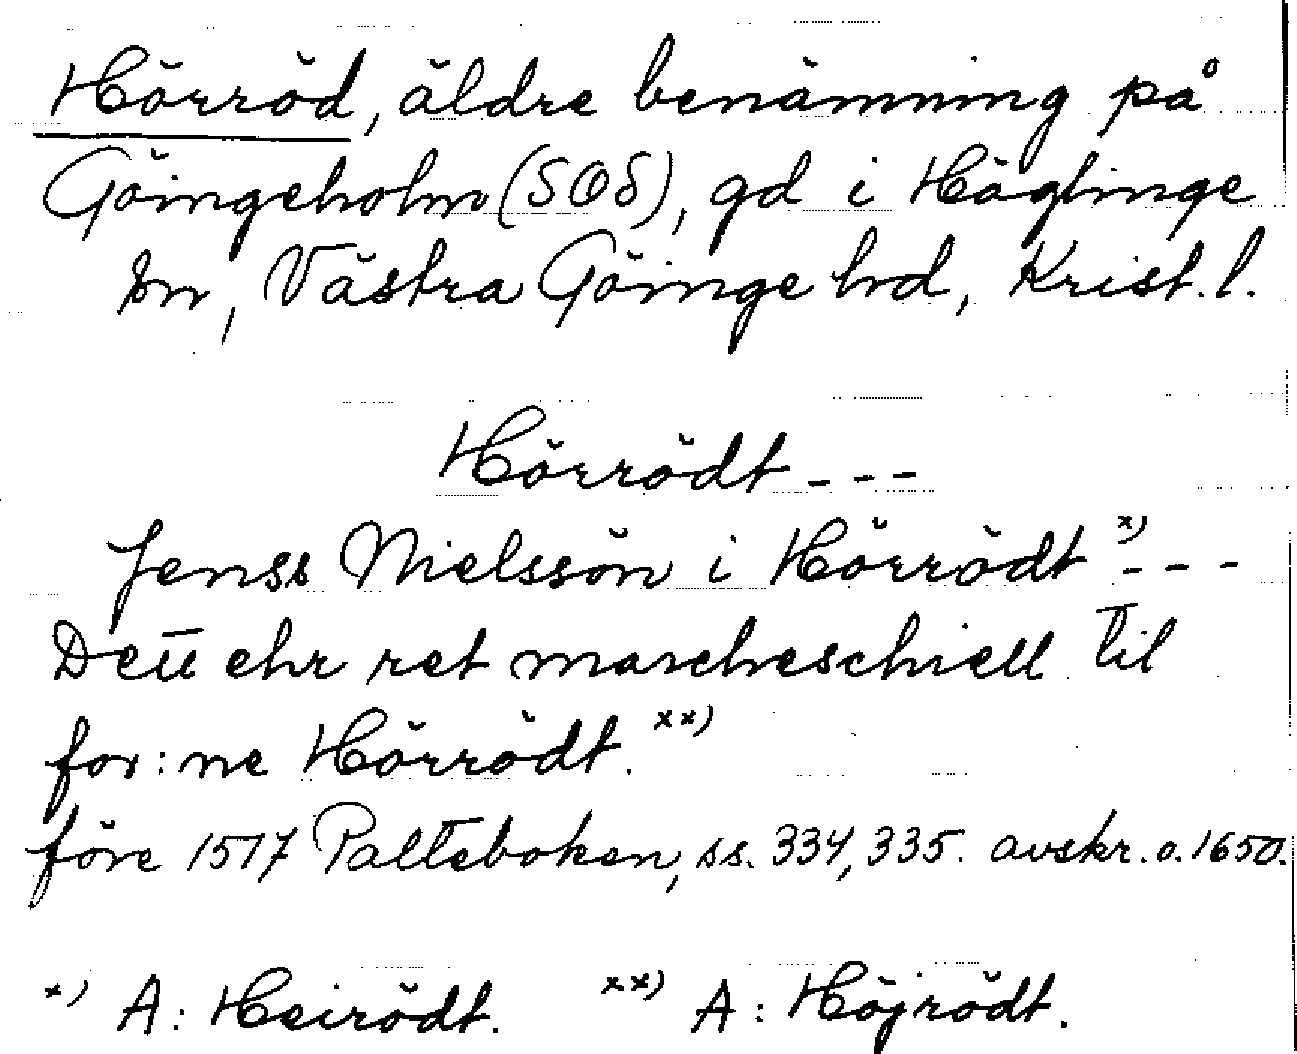 Hörröd, äldre benämning på
Göingeholm (SOS), gd i Häglinge
sn, Västra Göinge hd, Krist. l.
Hörrödt - - -
Jenss Nielssön i Hörrödt x) - - -
Dett ehr ret marcheschiell til
for:ne Hörrödt. xx)
före 1517 Palteboken, ss. 334, 335. avskr. o. 1650.
x) A: Heirödt. xx) A: Höjrödt.